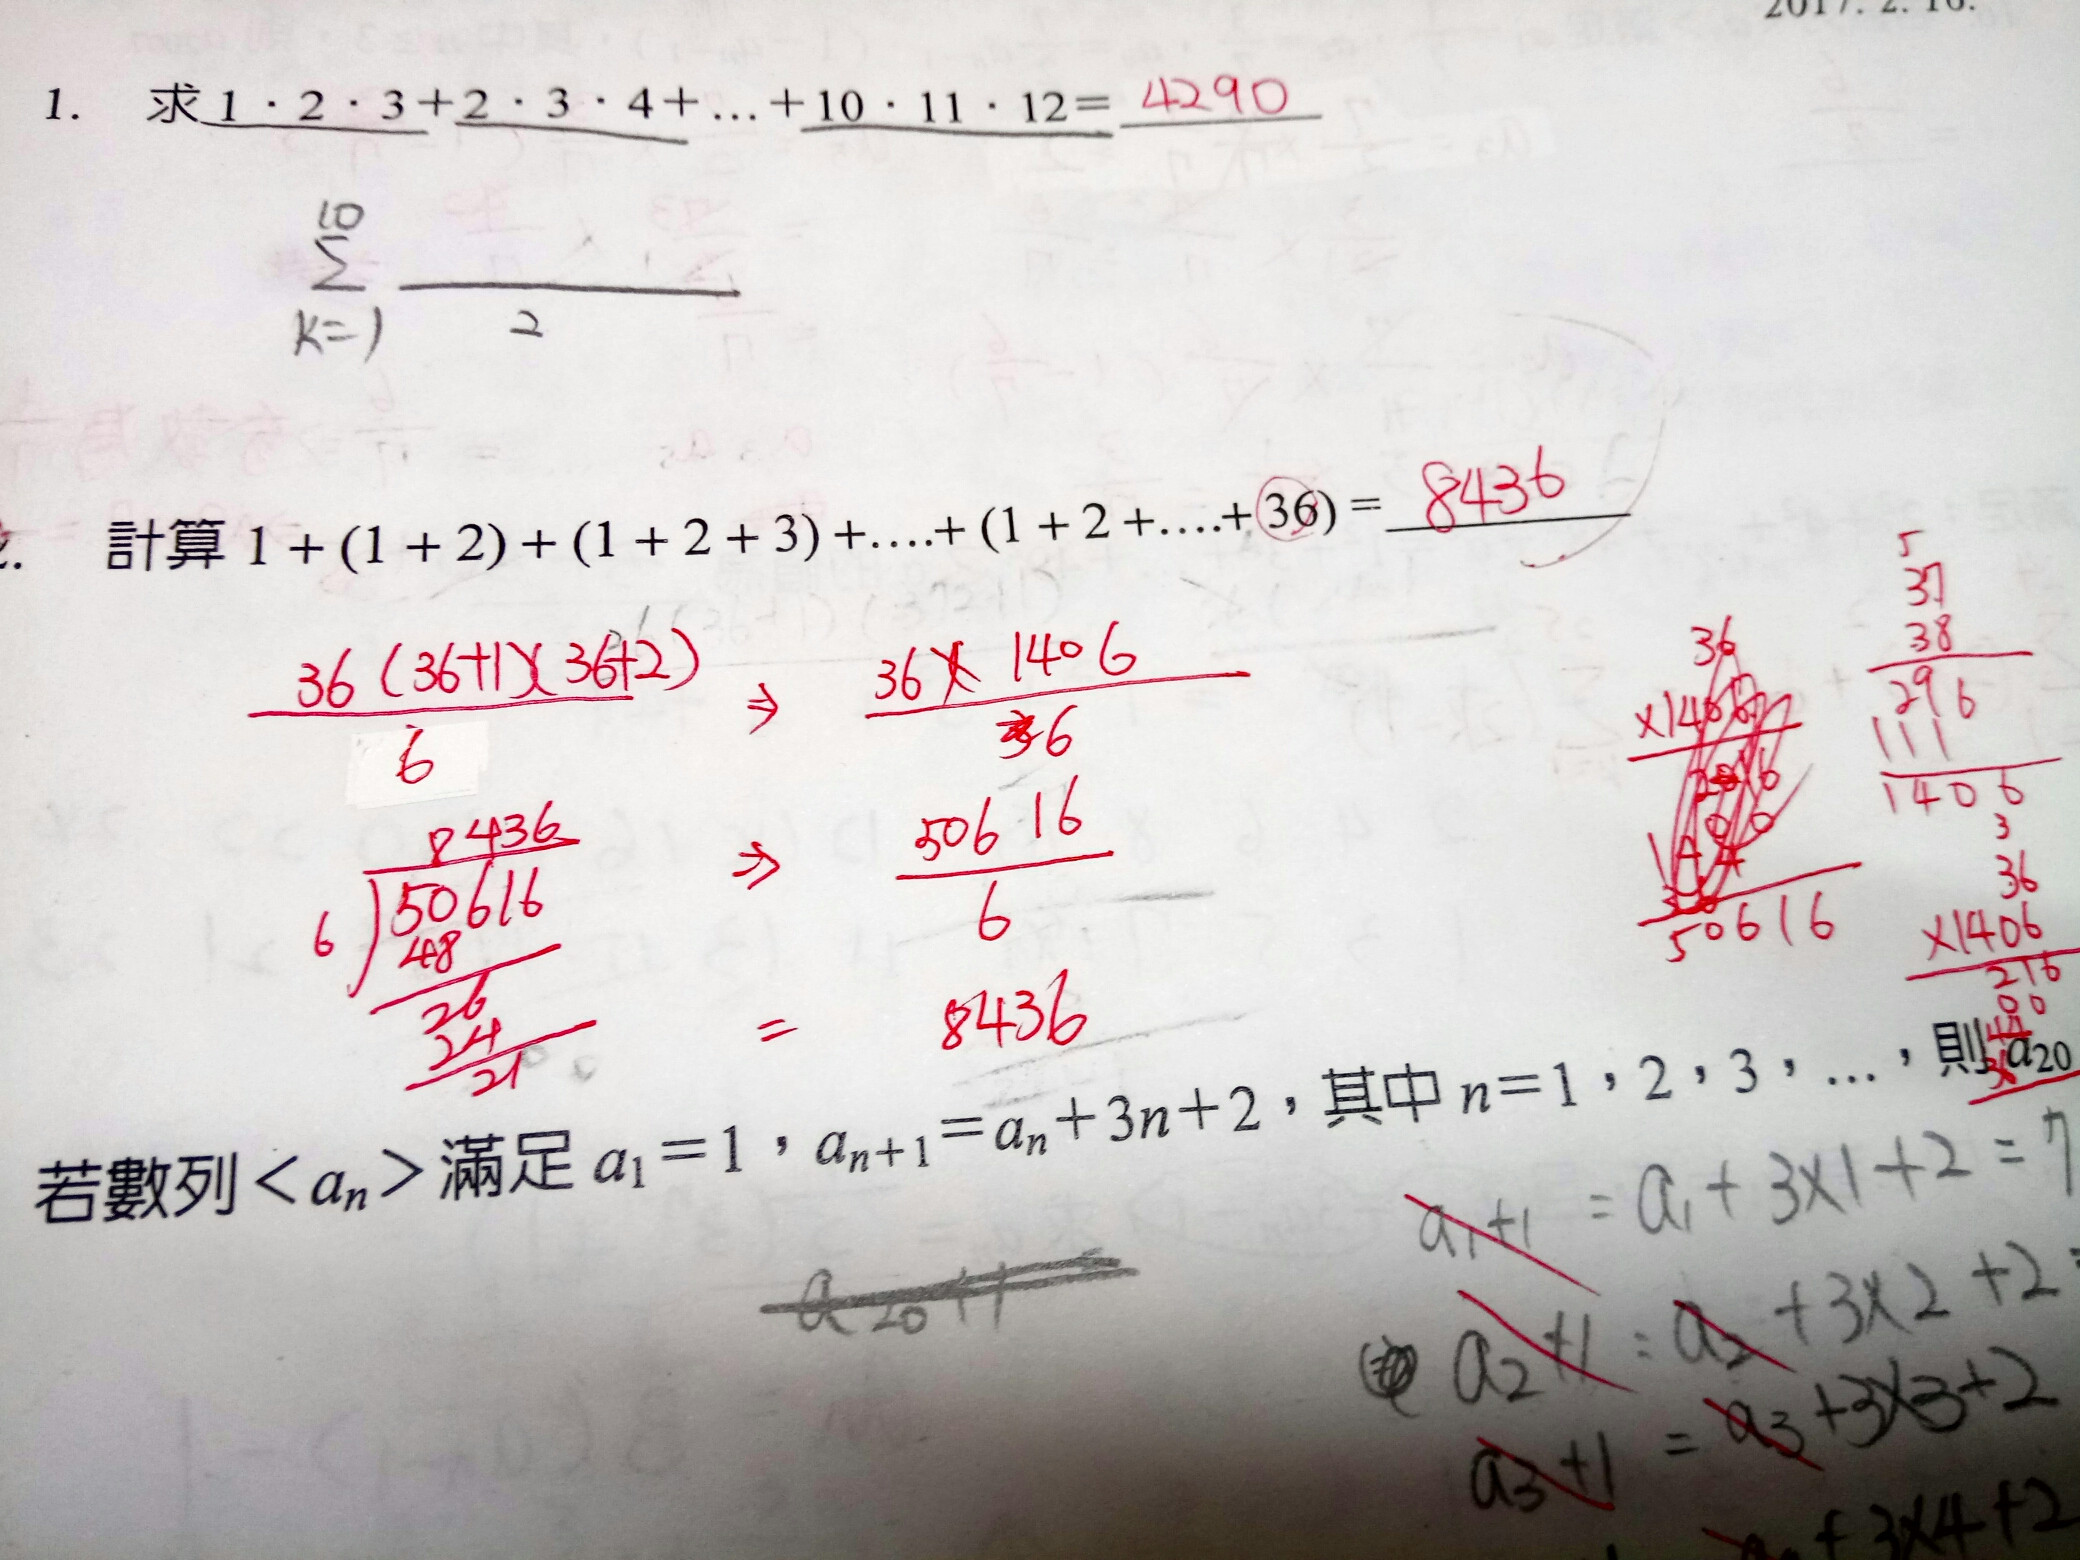 1. 求 1 · 2 · 3 + 2 · 3 · 4 + … + 10 · 11 · 12 = 4290
10
Σ
k=1 2
計算 1 + (1 + 2) + (1 + 2 + 3) +….+ (1 + 2 +….+ 36) = 8436
36 (36+1)(36+2) ⇒ 36 × 1406
6 6
⇒ 50616
6
= 8436
8436
6 ) 50616
48
26
24
21
36
×1406
50616
5
37
38
296
111
1406
3
36
×1406
216
00
若數列 < aₙ > 滿足 a₁ = 1,aₙ₊₁ = aₙ + 3n + 2,其中 n = 1,2,3,…,則 a₂₀
a₁+1 = a₁ + 3×1+2 = 7
a₂₀+1
a₂+1 = a₂ + 3×2 + 2 =
a₃+1 = a₃ + 3×3+2
+ 3×4+2